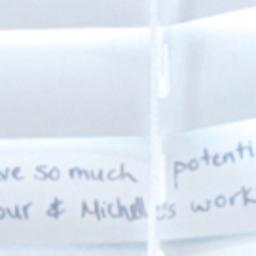 ve so much potenti
our & Michelle's work